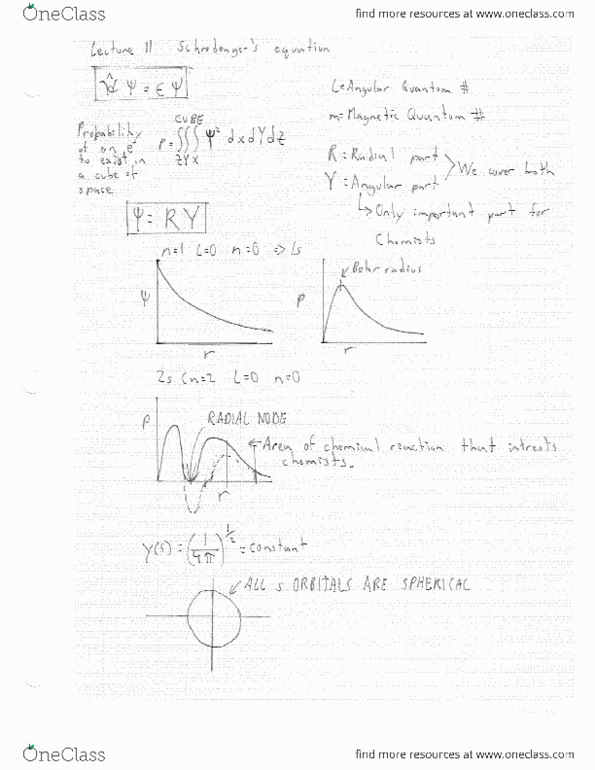 OneClass
find more resources at www.oneclass.com
Lecture 11 Schrodenger's equation
Ĥ Ψ = E Ψ
L=Angular Quantum #
m=Magnetic Quantum #
Probability
of an e⁻
to exist in
a cube of
space
CUBE
P = ∭ Ψ² dx dY dz
Z Y X
R = Radial part
Y = Angular part
> We cover both
↳ Only important part for
Chemists
Ψ = R Y
n=1 L=0 n=0 => 1s
Ψ
r
P
Bohr radius
r
2s (n=2 L=0 n=0
P
RADIAL NODE
Area of chemical reaction that intrests
chemists.
r
Y(s) = (1/4π)^1/2 = constant
ALL s ORBITALS ARE SPHERICAL
OneClass
find more resources at www.oneclass.com